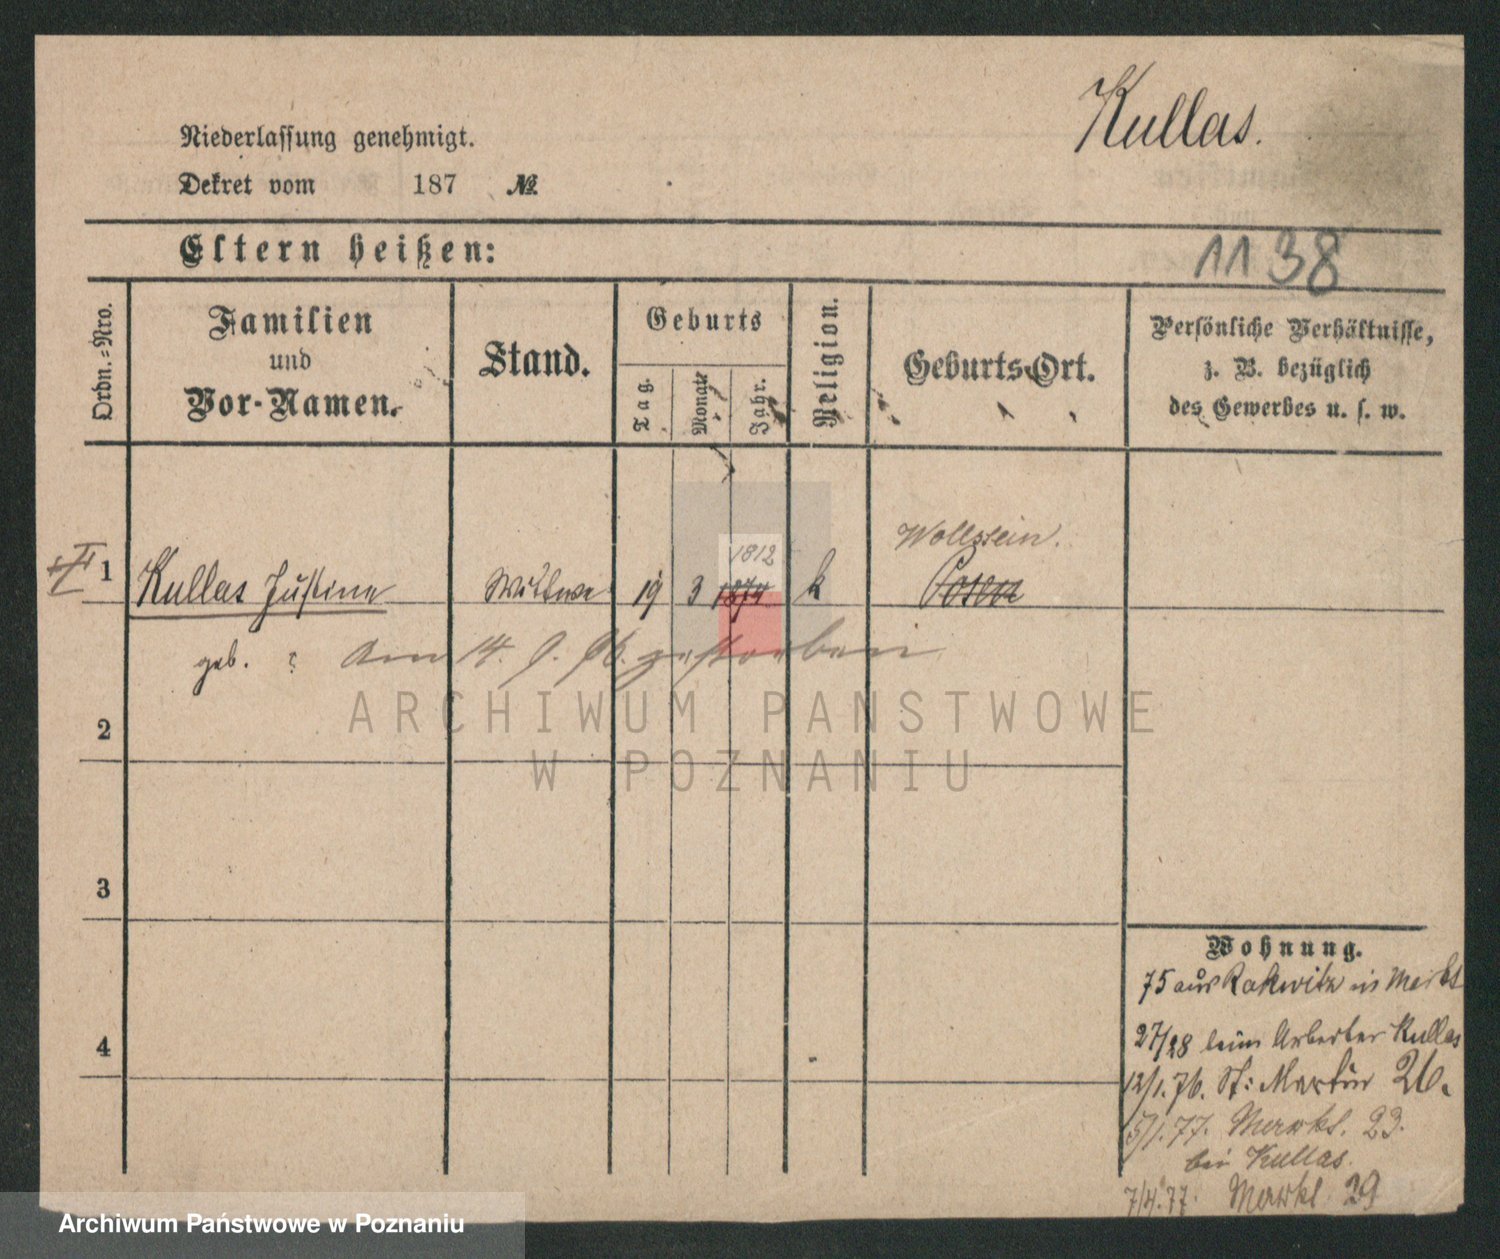 Kullas.
Niederlassung genehmigt.
Dekret vom 187 №
Eltern heißen:
11 38
Ordn.=Nro.
Familien
und
Vor-Namen.
Stand.
Geburts
Tag.
Monate
Jahr.
Religion.
Geburts-Ort.
Persönliche Verhältnisse,
z. B. bezüglich
des Gewerbes u. s. w.
Wollstein.
1812
II 1 Kullas Justine Wittwe 19 3 1874 k Posen
geb. ? Am 14. 9. 86. gestorben
ARCHIWUM PAŃSTWOWE
W POZNANIU
2
3
4
Wohnung.
75 aus Rakwitz in Markt
27/28 beim Arbeiter Kullas
12/1. 76. St: Martin 26.
5/1. 77. Markt. 23.
bei Kullas.
7/4. 77. Markt 29
Archiwum Państwowe w Poznaniu